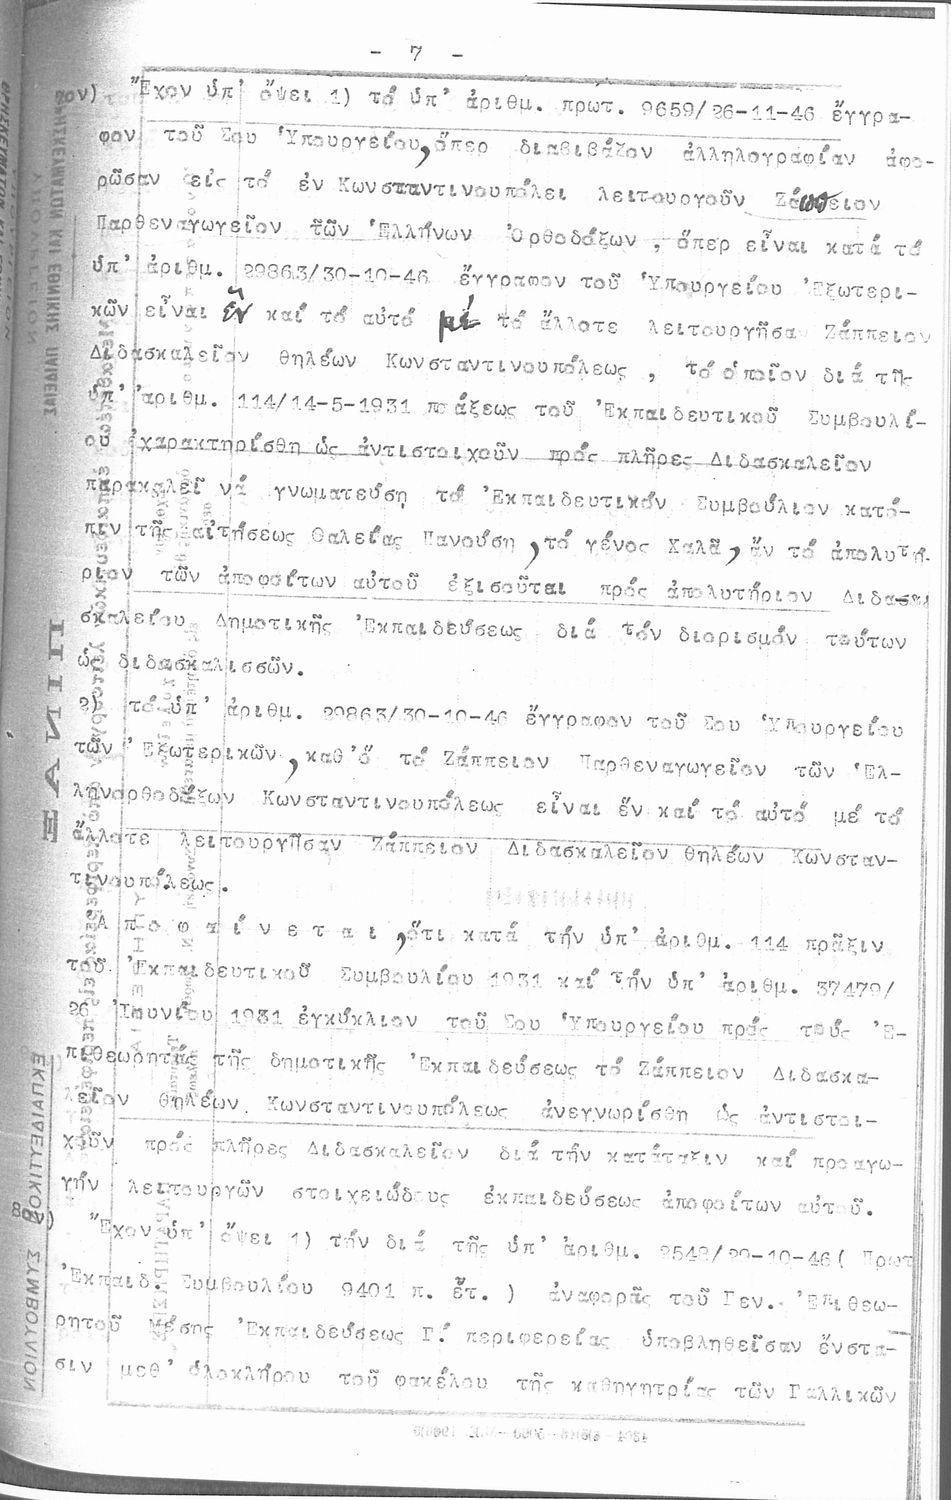 - 7 -
7ον) Ἔχον ὑπ' ὄψει 1) τό ὑπ' ἀριθμ. πρωτ. 9659/26-11-46 ἔγγρα-
φον τοῦ Σου Ὑπουργείου, ὅπερ διαβιβάζον ἀλληλογραφίαν ἀφο-
ρῶσαν εἰς τό ἐν Κωνσταντινουπόλει λειτουργοῦν Ζάππειον
Παρθεναγωγεῖον τῶν Ἑλλήνων Ὀρθοδόξων, ὅπερ εἶναι κατά τό
ὑπ' ἀριθμ. 29863/30-10-46 ἔγγραφον τοῦ Ὑπουργείου Ἐξωτερι-
κῶν εἶναι ἕν καί τό αὐτό μέ τό ἄλλοτε λειτουργῆσαν Ζάππειον
Διδασκαλεῖον θηλέων Κωνσταντινουπόλεως, τό ὁποῖον διά τῆς
ὑπ' ἀριθμ. 114/14-5-1931 πράξεως τοῦ Ἐκπαιδευτικοῦ Συμβουλί-
ου ἐχαρακτηρίσθη ὡς ἀντιστοιχοῦν πρός πλῆρες Διδασκαλεῖον
παρακαλεῖ νά γνωματεύσῃ τό Ἐκπαιδευτικόν Συμβούλιον κατό-
πιν τῆς αἰτήσεως Θαλείας Πανούση, τό γένος Χαλᾶ, ἄν τό ἀπολυτή-
ριον τῶν ἀποφοίτων αὐτοῦ ἐξισοῦται πρός ἀπολυτήριον Διδασ
σκαλείου Δημοτικῆς Ἐκπαιδεύσεως διά τόν διορισμόν τούτων
ὡς διδασκαλισσῶν.
2) τό ὑπ' ἀριθμ. 29863/30-10-46 ἔγγραφον τοῦ Σου Ὑπουργείου
τῶν Ἐξωτερικῶν, καθ' ὅ τό Ζάππειον Παρθεναγωγεῖον τῶν Ἑλ-
ληνορθοδόξων Κωνσταντινουπόλεως εἶναι ἕν καί τό αὐτό μέ τό
ἄλλοτε λειτουργῆσαν Ζάππειον Διδασκαλεῖον θηλέων Κωνσταν-
τινουπόλεως.
Ἀ π ο φ α ί ν ε τ α ι, ὅτι κατά τήν ὑπ' ἀριθμ. 114 πρᾶξιν
τοῦ Ἐκπαιδευτικοῦ Συμβουλίου 1931 καί τήν ὑπ' ἀριθμ. 37479/
26 Ἰουνίου 1931 ἐγκύκλιον τοῦ Σου Ὑπουργείου πρός τούς Ἐ-
πιθεωρητάς τῆς δημοτικῆς Ἐκπαιδεύσεως τό Ζάππειον Διδασκα-
λεῖον θηλέων Κωνσταντινουπόλεως ἀνεγνωρίσθη ὡς ἀντιστοι-
χοῦν πρός πλῆρες Διδασκαλεῖον διά τήν κατάταξιν καί προαγω-
γήν λειτουργῶν στοιχειώδους ἐκπαιδεύσεως ἀποφοίτων αὐτοῦ.
8ον) Ἔχον ὑπ' ὄψει 1) τήν διά τῆς ὑπ' ἀριθμ. 2548/29-10-46 ( Πρωτ
Ἐκπαιδ. Συμβουλίου 9401 π. ἔτ. ) ἀναφορᾶς τοῦ Γεν. Ἐπιθεω-
ρητοῦ Μέσης Ἐκπαιδεύσεως Γ! περιφερείας ὑποβληθεῖσαν ἔνστα-
σιν μεθ' ὁλοκλήρου τοῦ φακέλου τῆς καθηγητρίας τῶν Γαλλικῶν